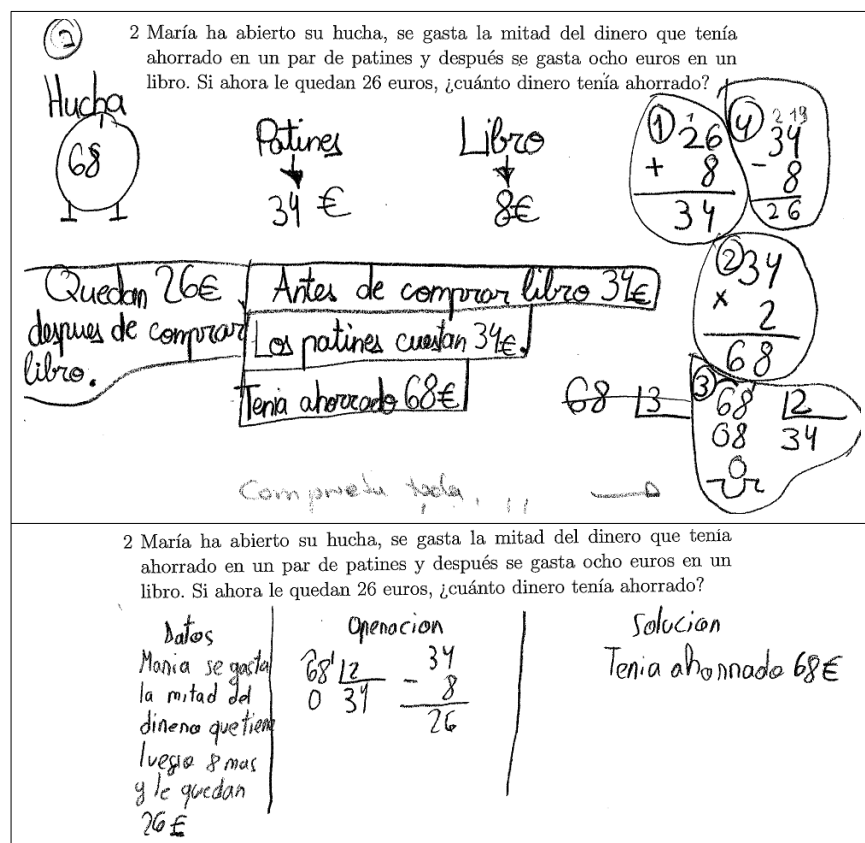 2
2 María ha abierto su hucha, se gasta la mitad del dinero que tenía
ahorrado en un par de patines y después se gasta ocho euros en un
libro. Si ahora le quedan 26 euros, ¿cuánto dinero tenía ahorrado?
Hucha
68
Patines
34 €
Libro
8€
1
1
26
+ 8
34
4
2 19
34
- 8
26
Quedan 26€
despues de comprar
libro.
Antes de comprar libro 34€
Los patines cuestan 34€.
Tenia ahorrado 68€
2 34
x 2
68
68 3
3 68 2
08 34
0
2 María ha abierto su hucha, se gasta la mitad del dinero que tenía
ahorrado en un par de patines y después se gasta ocho euros en un
libro. Si ahora le quedan 26 euros, ¿cuánto dinero tenía ahorrado?
Datos
Maria se gasta
la mitad del
dinero que tiene
luego 8 mas
y le quedan
26 €
Operacion
68 2
0 34
34
- 8
26
Solucion
Tenia ahorrado 68€